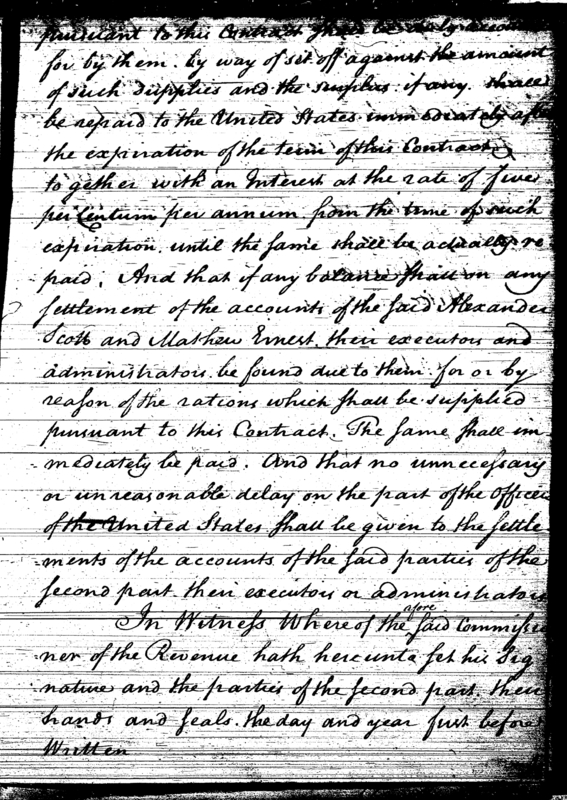 pursuant to this Contract shall be duly
for by them. by way of set off against the amount
of such supplies and the surplus if any. shall
be repaid to the United States immediately after
the expiration of the term of this Contract,
together with an Interest at the rate of five
per Centum per annum from the time of such
expiration. until the same shall be actually re
paid. And that if any balance shall on any
settlement of the accounts of the said Alexander
Scott and Mathew Ernest. their executors and
administrators. be found due to them. for or by
reason of the rations which shall be supplied
pursuant to this Contract. The same shall im-
mediately be paid. And that no unnecessary
or unreasonable delay on the part of the Officers
of the United States shall be given to the settle-
ments of the accounts of the said parties of the
second part. their executors or administrators
In Witness Whereof the afore said Commissio
ner of the Revenue hath hereunto set his Sig
nature and the parties of the second part. their
hands and seals. the day and year first before
Written